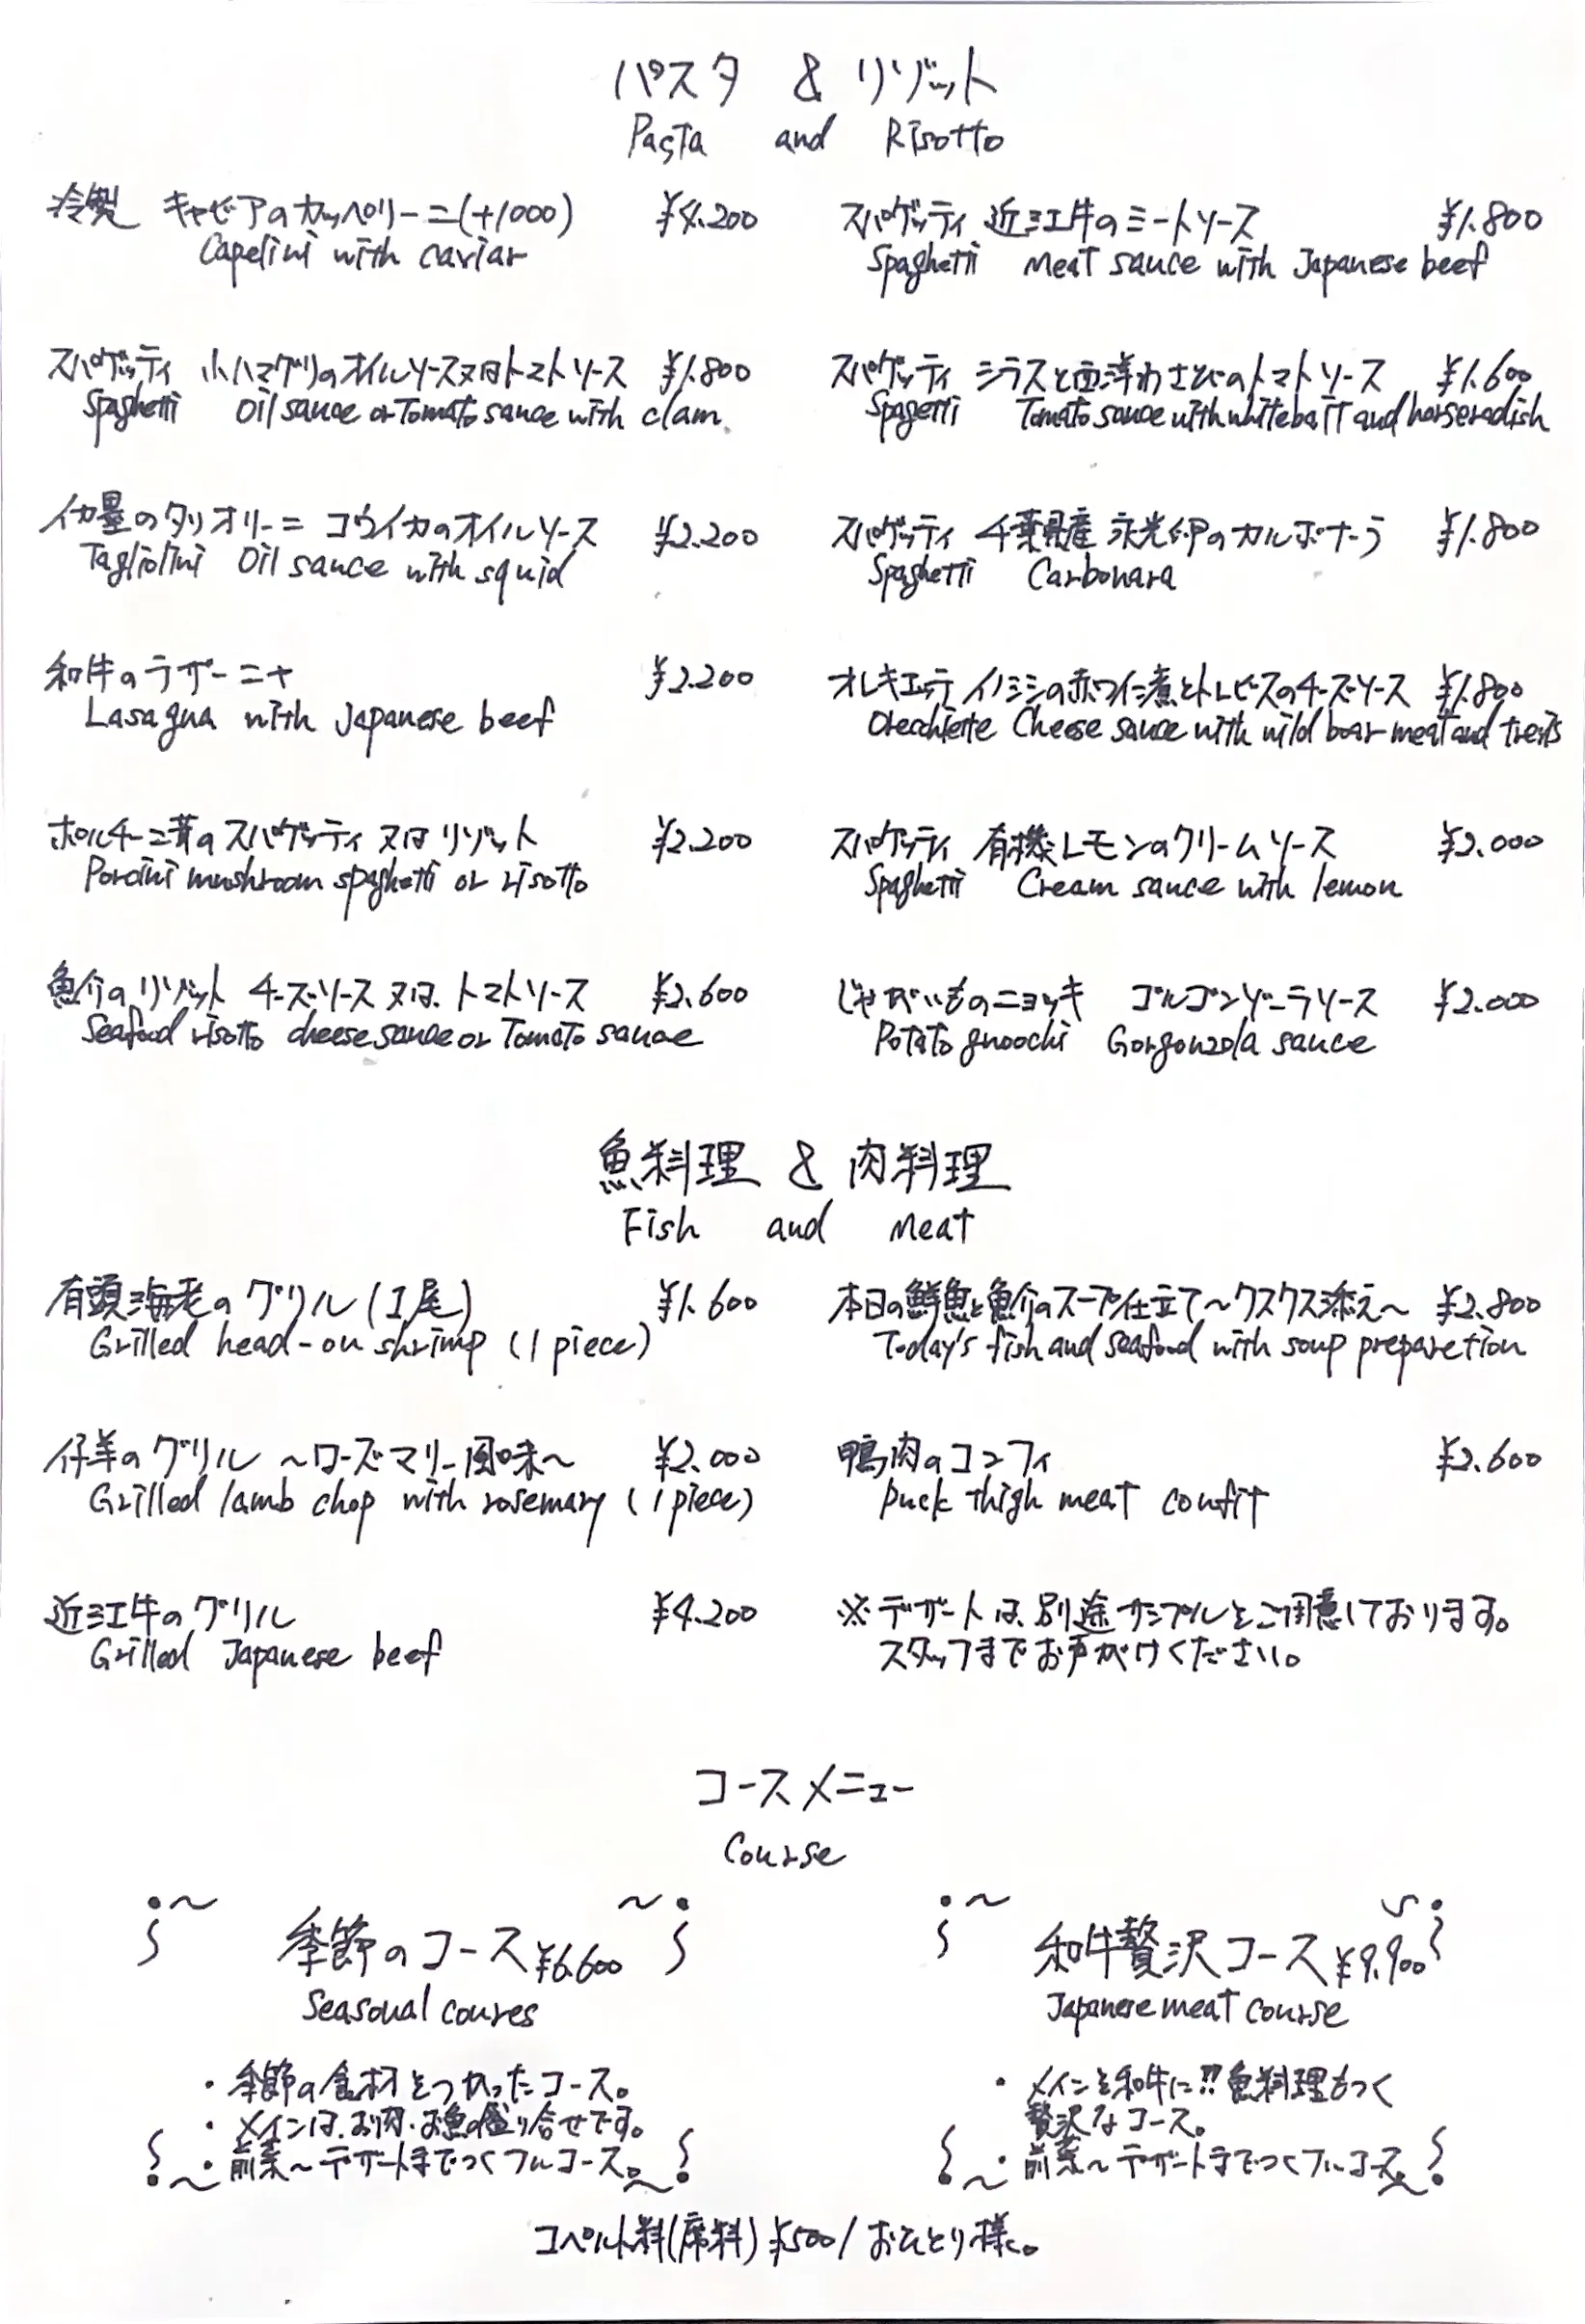 パスタ & リゾット
Pasta and Risotto
冷製 キャビアのカッペリーニ(+1000) ¥4.200
Capelini with caviar
スパゲッティ 小ハマグリのオイルソース又はトマトソース ¥1.800
Spaghetti Oil sauce or Tomato sauce with clam
イカ墨のタリオリーニ コウイカのオイルソース ¥2.200
Tagliolini Oil sauce with squid
和牛のラザーニャ ¥2.200
Lasagna with Japanese beef
ポルチーニ茸のスパゲッティ又はリゾット ¥2.200
Porcini mushroom spaghetti or risotto
魚介のリゾット チーズソース又は、トマトソース ¥2.600
Seafood risotto cheese sauce or Tomato sauce
スパゲッティ 近江牛のミートソース ¥1.800
Spaghetti Meat sauce with Japanese beef
スパゲッティ シラスと西洋わさびのトマトソース ¥1.600
Spagetti Tomato sauce with whitebait and horseradish
スパゲッティ 千葉県産 永光卵のカルボナーラ ¥1.800
Spaghetti Carbonara
オレキエッテ イノシシの赤ワイン煮とトレビスのチーズソース ¥1.800
Orecchiette Cheese sauce with wild boar meat and
スパゲッティ 有機レモンのクリームソース ¥2.000
Spaghetti Cream sauce with lemon
じゃがいものニョッキ ゴルゴンゾーラソース ¥2.000
Potato gnoochi Gorgonzola sauce
魚料理 & 肉料理
Fish and Meat
有頭海老のグリル(1尾) ¥1.600
Grilled head-on shrimp (1 piece)
仔羊のグリル ～ローズマリー風味～ ¥2.000
Grilled lamb chop with rosemary (1 piece)
近江牛のグリル ¥4.200
Grilled Japanese beef
本日の鮮魚と魚介のスープ仕立て～クスクス添え～ ¥2.800
Today's fish and seafood with soup preparetion
鴨肉のコンフィ ¥2.600
Duck thigh meat confit
※デザートは、別途サンプルをご用意しております。
スタッフまでお声がけください。
コースメニュー
Course
季節のコース ¥6.600
Seasonal coures
・季節の食材をつかったコース。
・メインは、お肉・お魚の盛り合せです。
・前菜～デザートまでつくフルコース。
和牛贅沢コース ¥9.900
Japanese meat course
・メインを和牛に!!魚料理もつく
贅沢なコース。
・前菜～デザートまでつくフルコース。
コペルト料(席料) ¥500/おひとり様。